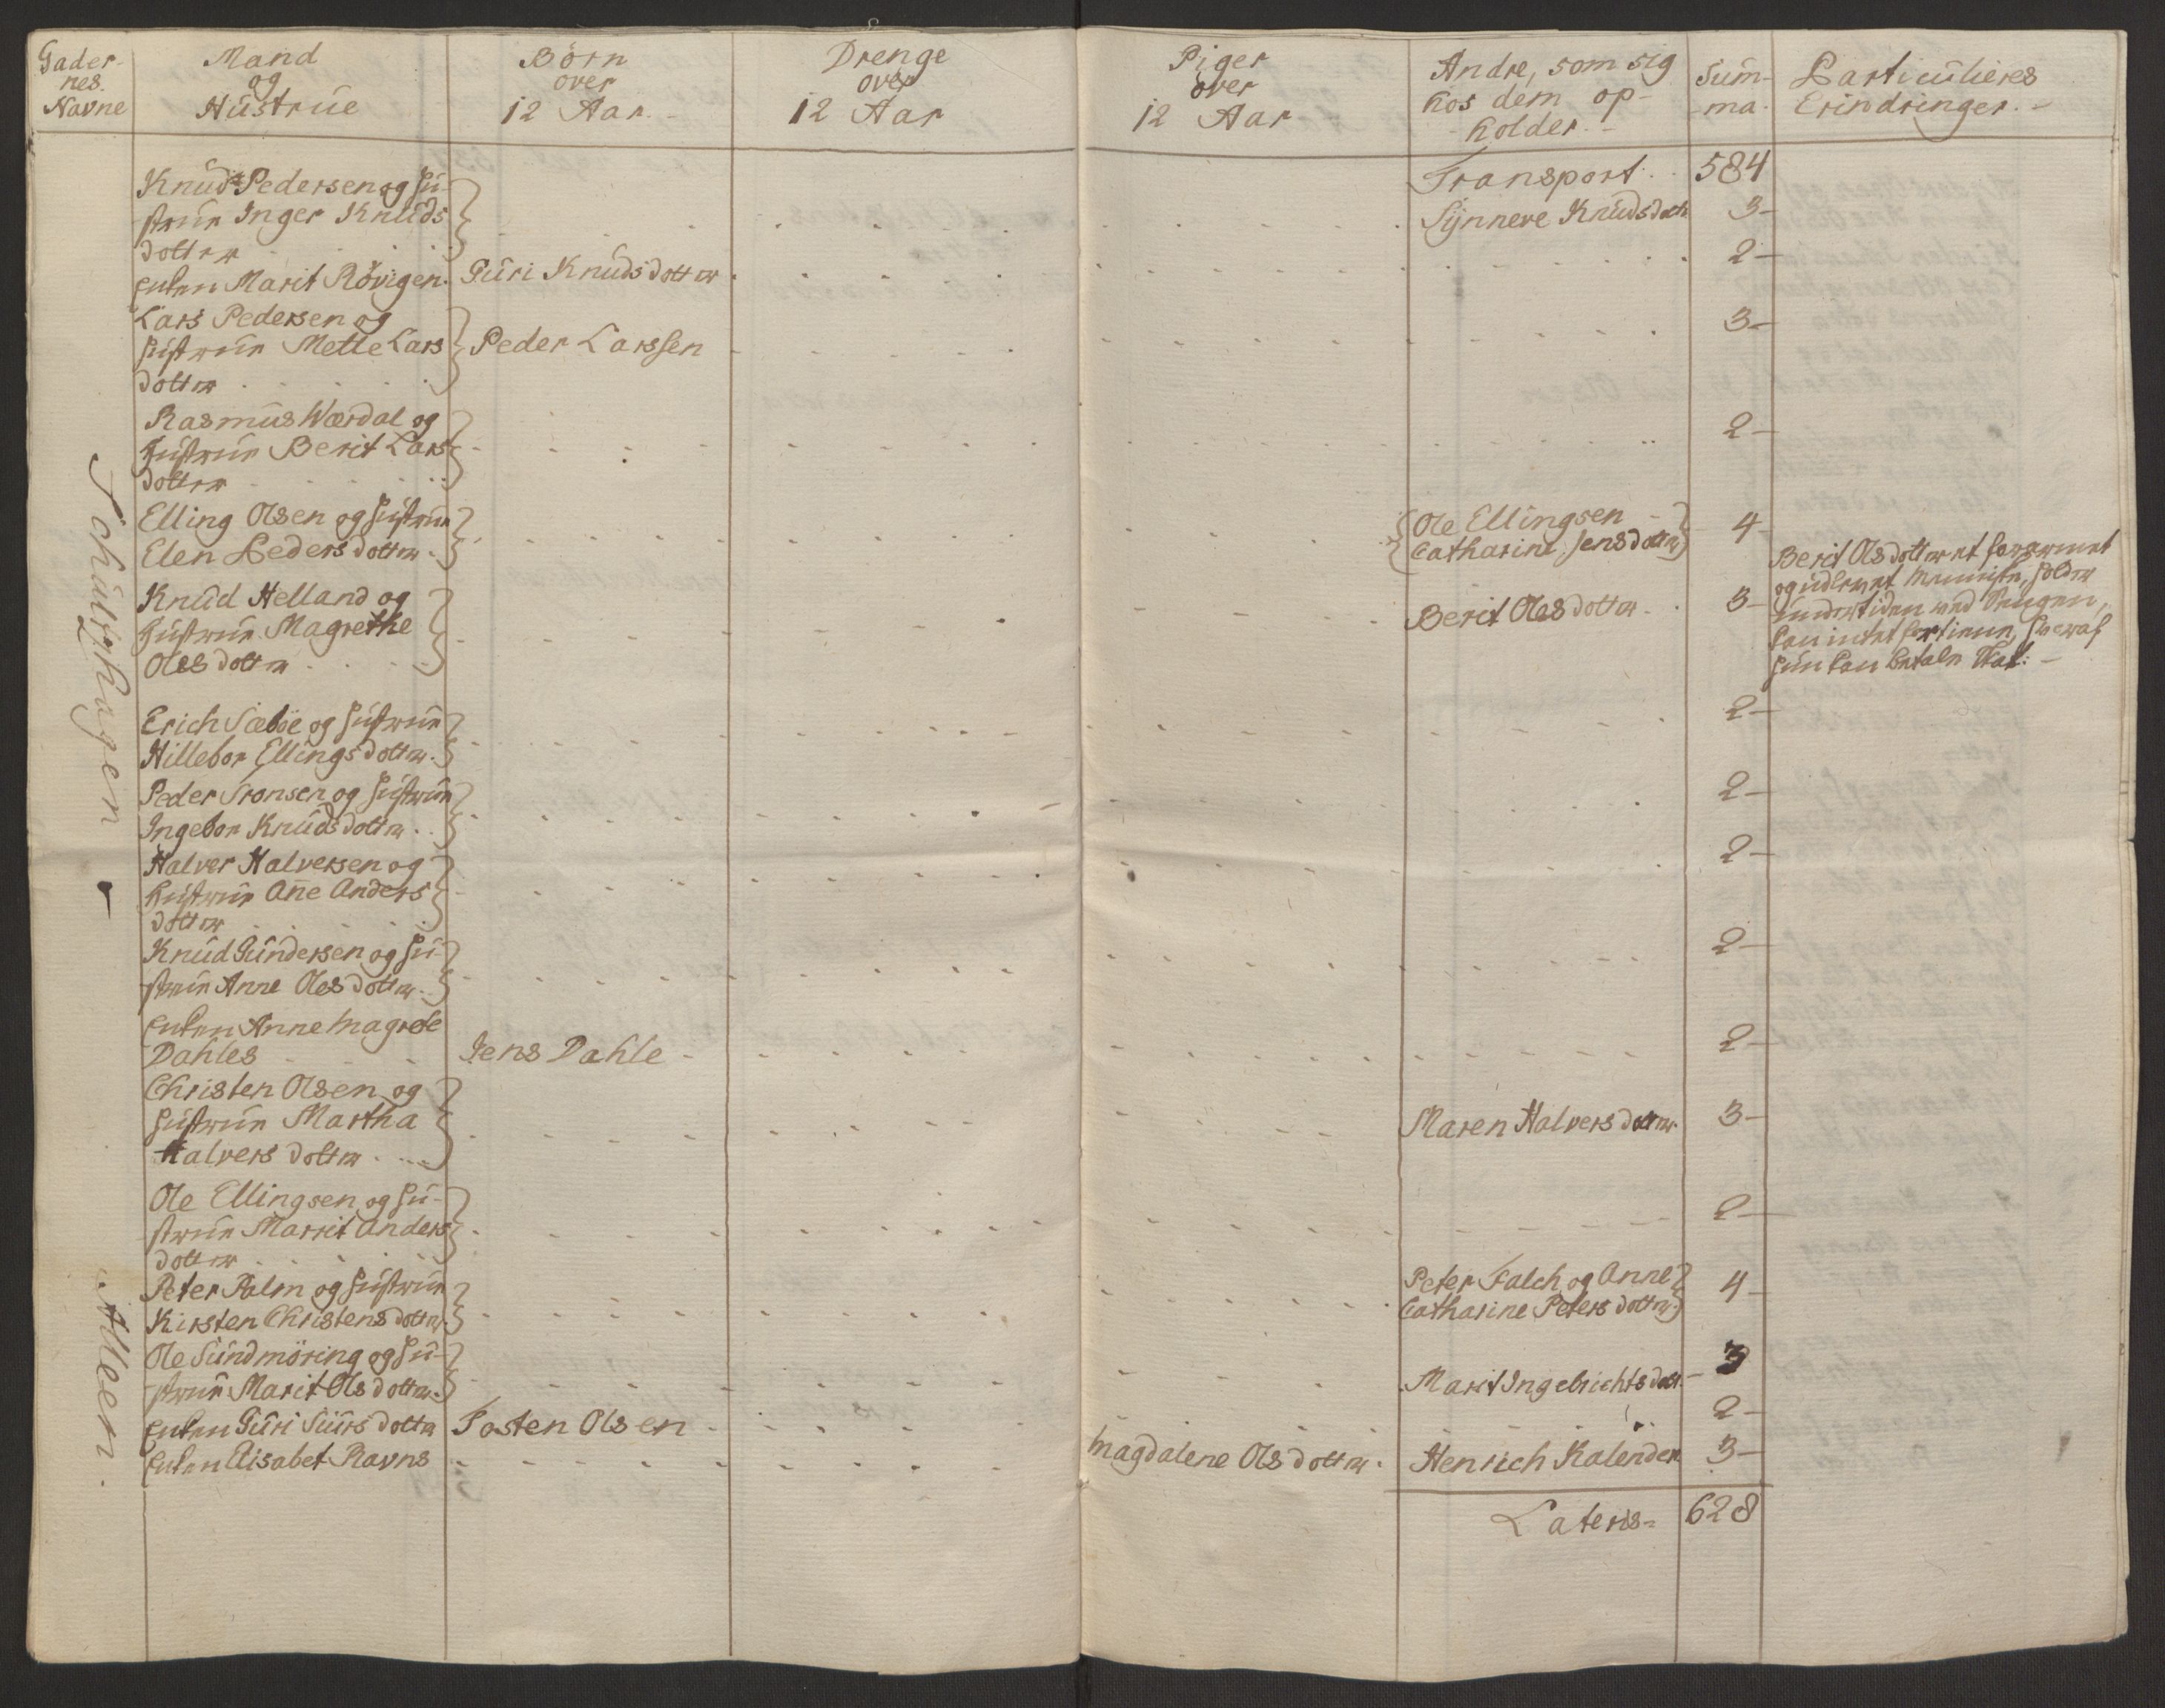 Gader-
nes.
Navne
Mand
og
Hústrúe
Börn
over
12 Aar.-
Drenge
over
12 Aar
Piger
over
12 Aar
Andre, som sig
hos dem op-
holder.-
Súm-
ma.
Particúlieres
Erindringer.-
Transport. 584
Knúd Pedersen og Hú-
strúe Inger Knúds
dotter
Synneve Knúdsdotter 3-
Enken Marit Rövigen. Gúri Knúdsdotter 2-
Lars Pedersen og
Hústrúe Mette Lars
dotter
Peder Larssen 3-
Rasmús Wærdal og
Hústrúe Berit Lars
dotter
2-
Elling Olsen og Hústrúe
Elen Pedersdotter.
Ole Ellingsen
Catharine Jensdotter
4-
Knúd Helland og
Hústrúe Magrethe
Olesdotter
Berit Olesdotter. 3-
Berit Olsdotter et forarmet
og údlevet Menniske, holder
úndertiden ved Sengen,
kan intet fortiene, hvoraf
hún kan betale Skat:-
Schúltzhagen
Erich Sæböe og Hústrúe
Hillebor Ellingsdotter.
2-
Peder Sronsen og Hústrúe
Ingebor Knúdsdotter.
2-
Halver Halversen og
Hústrúe Añe Anders
dotter
2-
Knúd Gúndersen og Hú-
strúe Anne Olesdotter.
2-
Enken Anne Magrete
Dahles
Jens Dahle- 2-
Christen Olsen og
Hústrúe Martha
Halversdotter
Maren Halversdotter. 3-
Ole Ellingsen og Hú-
strúe Marrit Anders
dotter
2-
Alleen.
Peter Palm og Hústrúe
Kirsten Christensdotter.
Peter Falch og Anne
Catharine Petersdotter.
4-
Ole Súndmöring og Hú-
strúe Marit Olsdotter.
Marit Ingebrichtsdott.- 3
Enken Gúri Siúrsdotter Tosten Olsen 2-
Enken Elisabet Ravns Magdalene Olsdotter. Henrich Kalender 3-
Lateris- 628